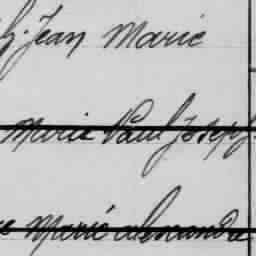 h. Jean Marie
Marie Paul Joseph
Marie alexandre